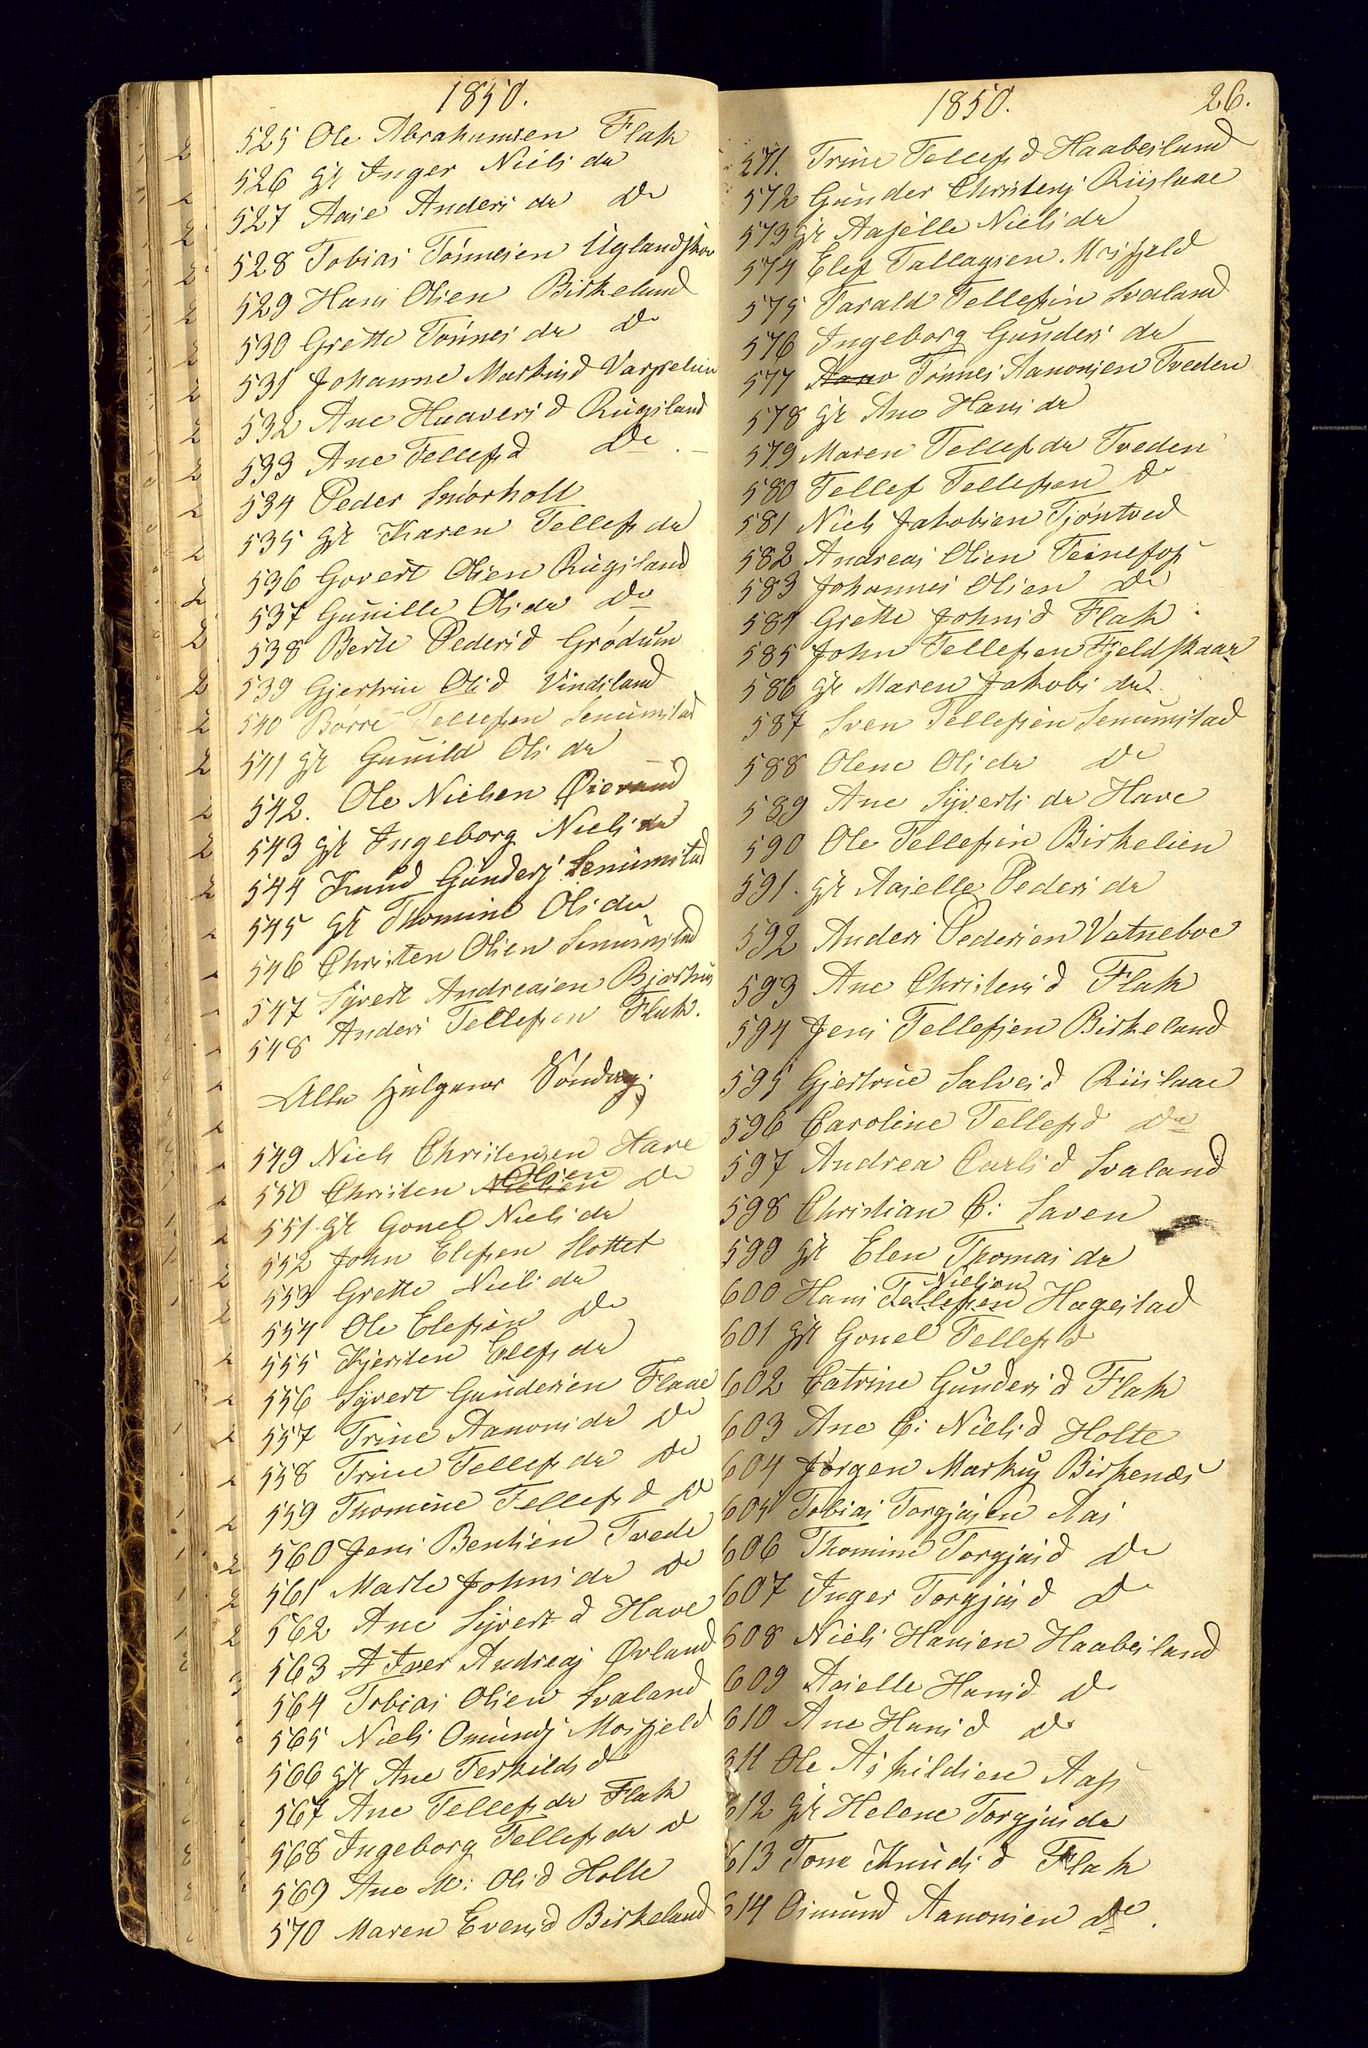 1850.
525 Ole Abrahamsen Flak
526 gk Inger Niels da
527 Aase Anders da do
528 Tobias Tönnesen Uglandskar
529 Hans Olsen Birkeland
530 Grette Tönnes da do
531 Johanne Markus d Varpelien
532 Ane Haavers d Rugsland
533 Ane Tellefs d do
534 Peder Smörholt
535 gk Karen Tellefs da
536 Govert Olsen Rugsland
537 Gunille Ols da do
538 Berte Peders d Grödum
539 Gjertrue Ols d Vindsland
540 Börre Tellefsen Senumstad
541 gk Gunild Ols da
542. Ole Nielsen Øierund
543 gk Ingeborg Niels da
544 Knud Gunders Senumstad
545 gk Thomine Ols da
546 Christen Olsen Senumstad
547 Syvert Andreasen Bjorhus
548 Anders Tellefsen Flak.
Alle Helgenes Söndag.
549 Niels Christensen Have
550 Christen Olsen do
551 gk Gonel Niels da
552 John Elefsen Slottet
553 Grette Niels da
554 Ole Elefsen do
555 Kjersten Elefs da
556 Syvert Gundersen Flaae
557 Trine Aanons da do
558 Trine Tellefs da do
559 Thomine Tellefs d do
560 Jens Bentsen Tvede
561 Marte Johns da do
562 Ane Syvert d Have
563 Andreas Øvland
564 Tobias Olsen Svaland
565 Niels Omunds Mosfjeld
566 gk Ane Terkilds d
567 Ane Tellefs da Flak
568 Ingeborg Tellefs da do
569 Ane M: Ols d Holte
570 Maren Evens d Birkeland
1850. 26.
571. Trine Tellefs d Haabesland
572 Gunder Christens Riislaae
573 gk Aaselle Niels da
574 Elef Tallagsen Mosfjeld
575 Tarald Tellefsen Svaland
576 Ingeborg Gunders da
577 Tönnes Aanonsen Tveden
578 gk Ane Hans da
579 Maren Tellefs da Tveden
580 Tellef Tellefsen do
581 Niels Jakobsen Tjöntved
582 Andreas Olsen Teinefos
583 Johannes Olsen do
584 Grette Johns d Flak
585 John Tellefsen Fjeldskaar
586 gk Maren Jakobs da
587 Sven Tellefsen Senumstad
588 Olene Ols da do
589 Ane Syverts da Have
590 Ole Tellefsen Birkelien
591. gk Aaselle Peders da
592 Anders Pedersen Vatneboe
593 Ane Christens d Flak
594 Jens Tellefsen Birkeland
595 Gjertrue Salves d Riislaae
596 Caroline Tellefs d do
597 Andrea Carls d Svaland
598 Christian C: Saven
599 gk Elen Thomas da
600 Hans Tellefsen Nielsen Hagestad
601 gk Gonel Tellefs d
602 Catrine Gunders d Flak
603 Ane C: Niels d Holte
604 Jörgen Markus Birkenes
605 Tobias Torgjusen Aas
606 Thomine Torgjus d do
607 Inger Torgjus d do
608 Niels Hansen Haabesland
609 Aaselle Hans d do
610 Ane Hans d do
611 Ole Askildsen Aas
612 gk Helene Torgjus da
613 Tone Knuds d Flak
614 Osmund Aanonsen do.